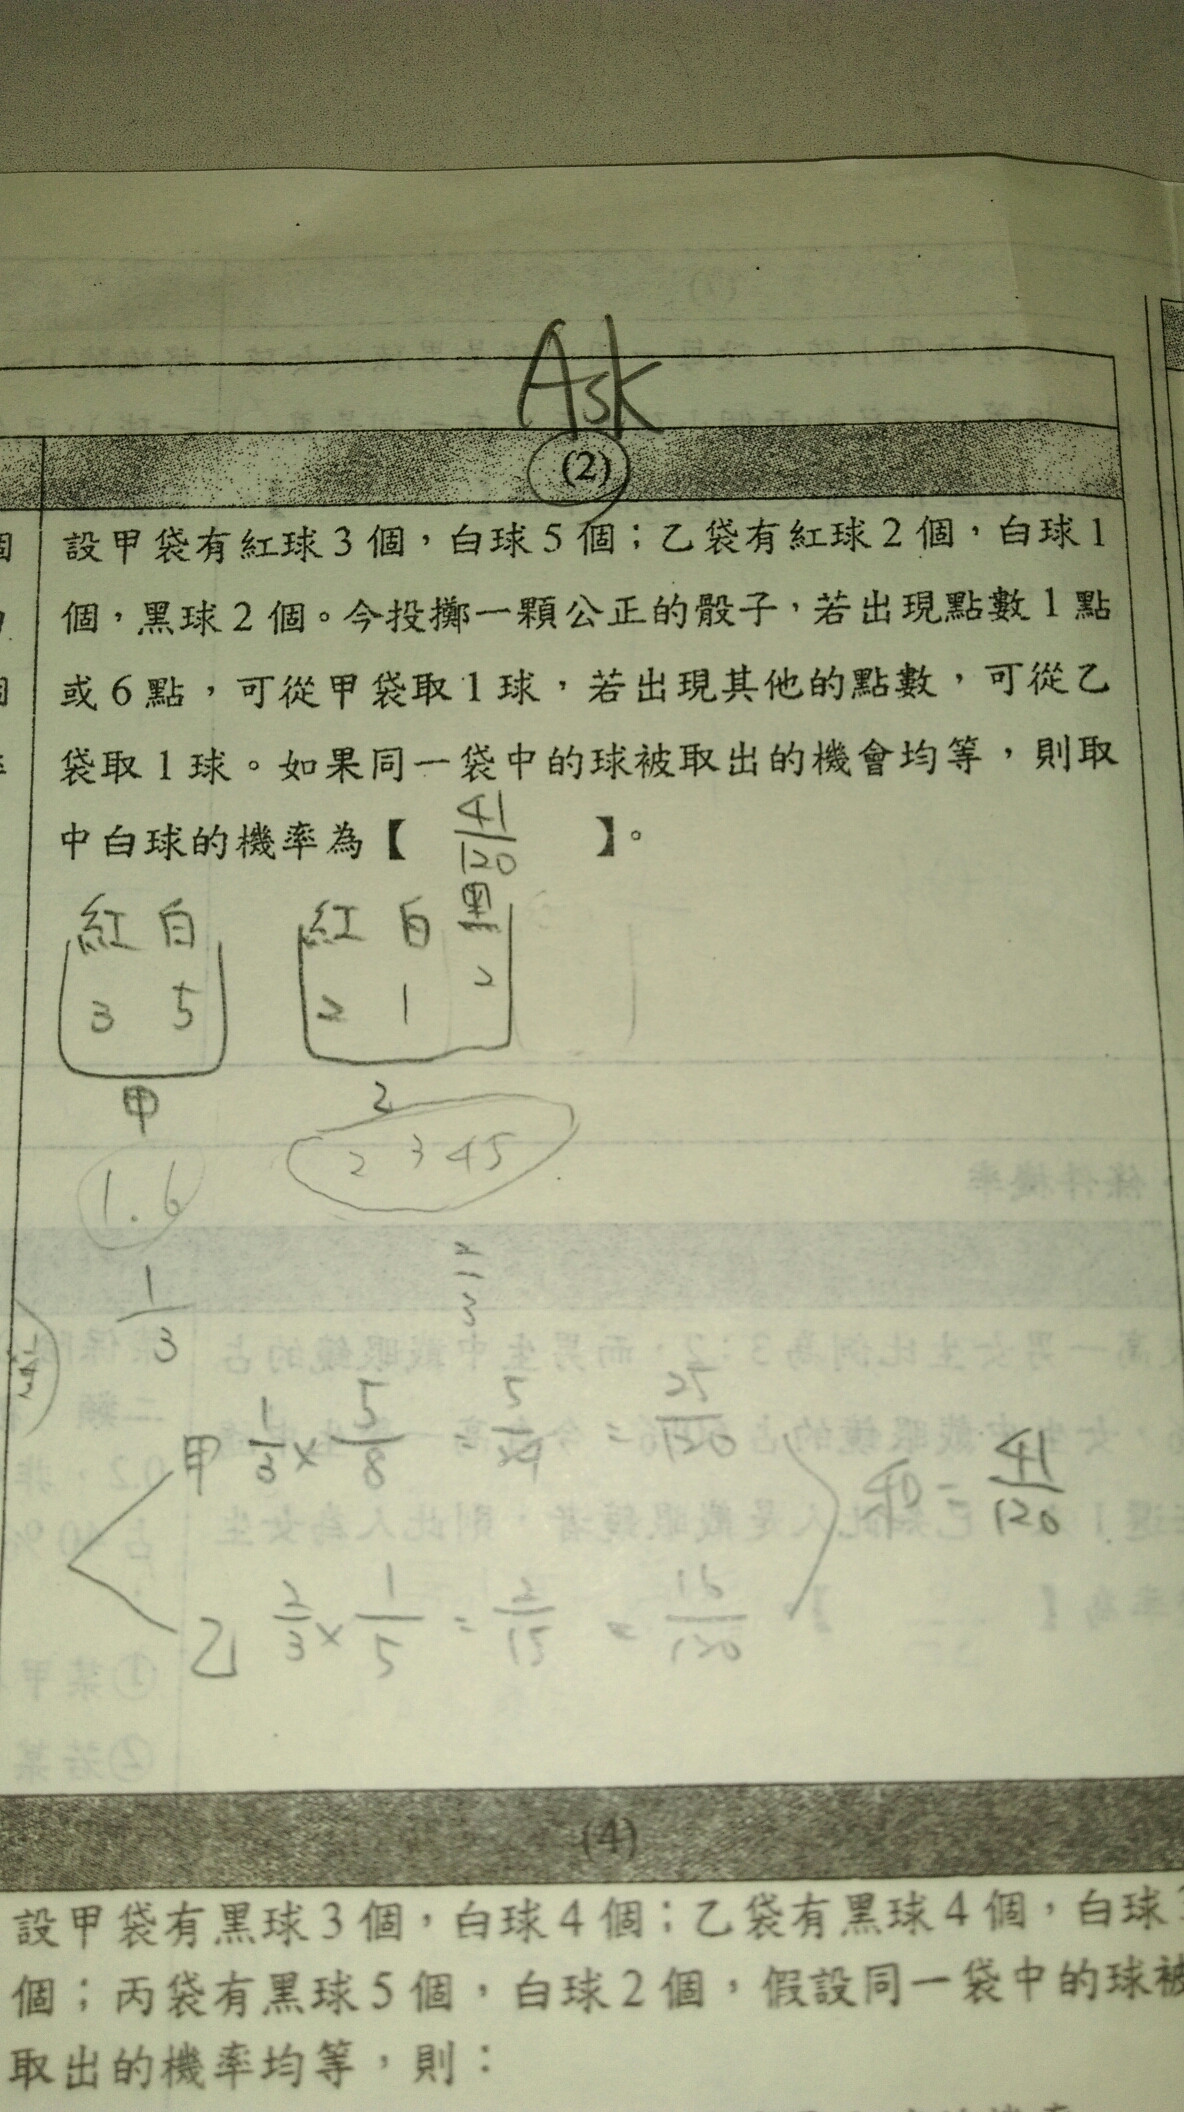 Ask
(2)
設甲袋有紅球3個，白球5個；乙袋有紅球2個，白球1
個，黑球2個。今投擲一顆公正的骰子，若出現點數1點
或6點，可從甲袋取1球，若出現其他的點數，可從乙
袋取1球。如果同一袋中的球被取出的機會均等，則取
中白球的機率為【 41/120 】。
紅 白 紅 白 黑
3 5 2 1 2
甲 乙
1.6 2 3 4 5
1/3 2/3
甲 1/3 × 5/8 = 5/24 = 25/120
和 = 41/120
乙 2/3 × 1/5 = 2/15 = 16/120
(4)
設甲袋有黑球3個，白球4個；乙袋有黑球4個，白球
個；丙袋有黑球5個，白球2個，假設同一袋中的球被
取出的機率均等，則：